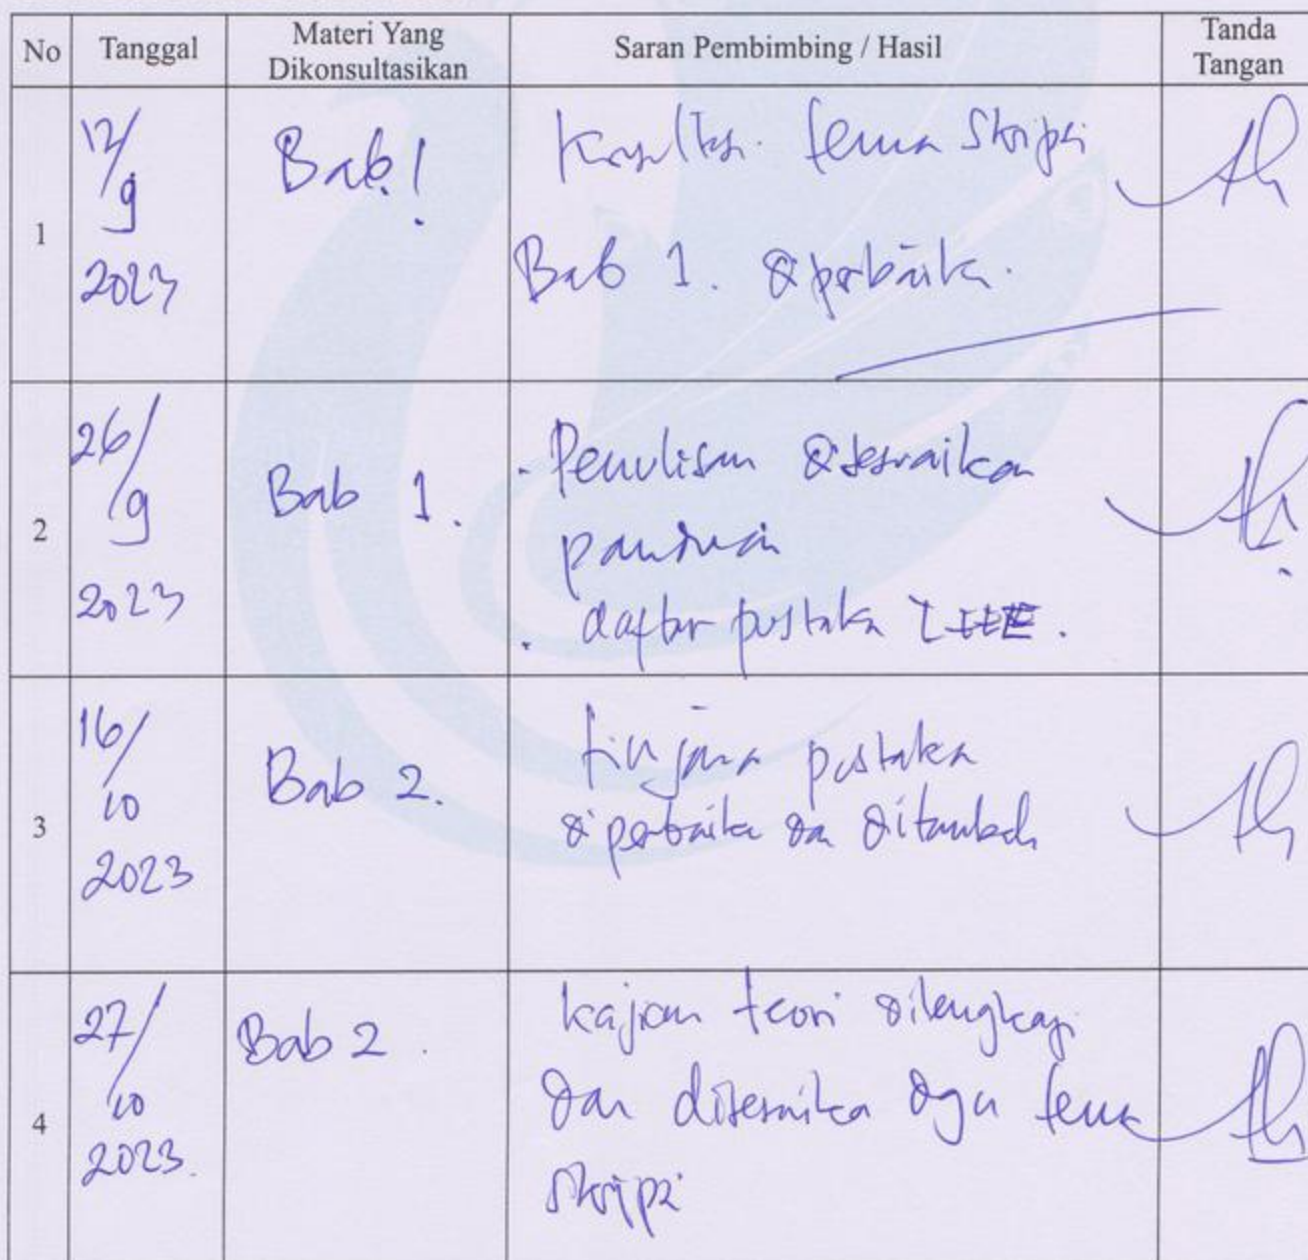 No Tanggal Materi Yang Dikonsultasikan Saran Pembimbing / Hasil Tanda Tangan
1
12/9
2023
Bab 1
tema Skripsi
Bab 1. diperbaika.
2
26/9
2023
Bab 1.
- Penulisan disesuaikan
panduan
. daftar pustaka
3
16/10
2023
Bab 2.
tinjaua pustaka
diperbaika dan ditambah
4
27/10
2023.
Bab 2.
kajian teori dilengkapi
dan disesuaika dgn tema
skripsi